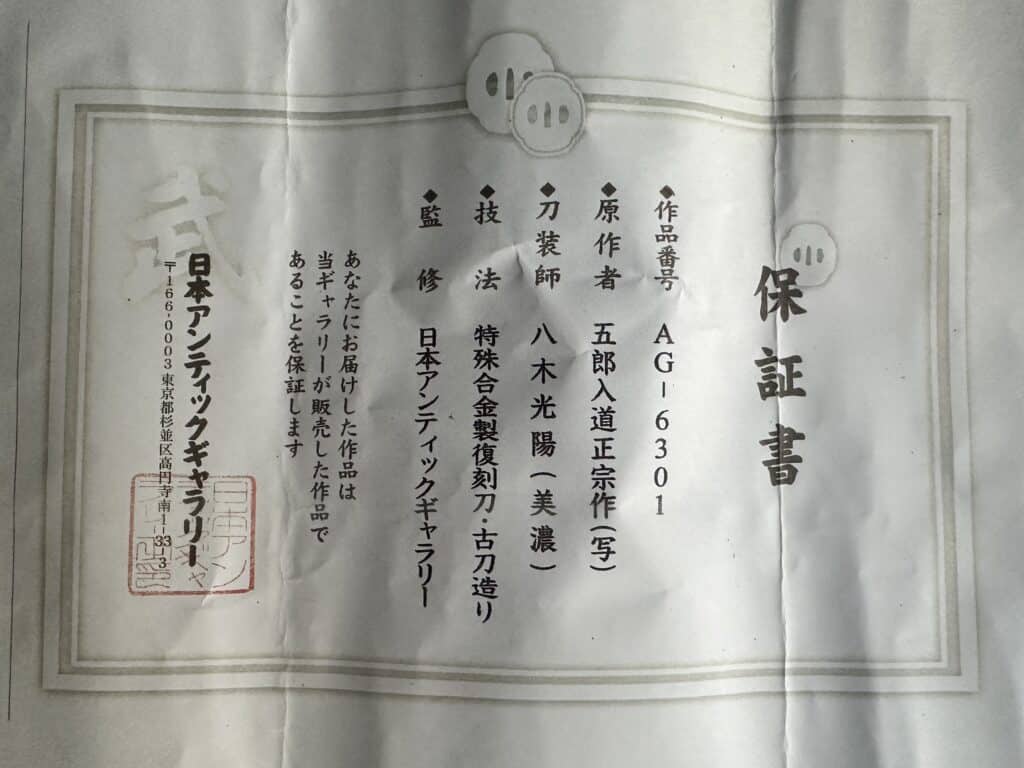 保証書
◆作品番号 AG-6301
◆原作者 五郎入道正宗作(写)
◆刀装師 八木光陽(美濃)
◆技法 特殊合金製復刻刀・古刀造り
◆監修 日本アンティックギャラリー
あなたにお届けした作品は
当ギャラリーが販売した作品で
あることを保証します
武
日本アンティックギャラリー
〒166-0003 東京都杉並区高円寺南1-33-3